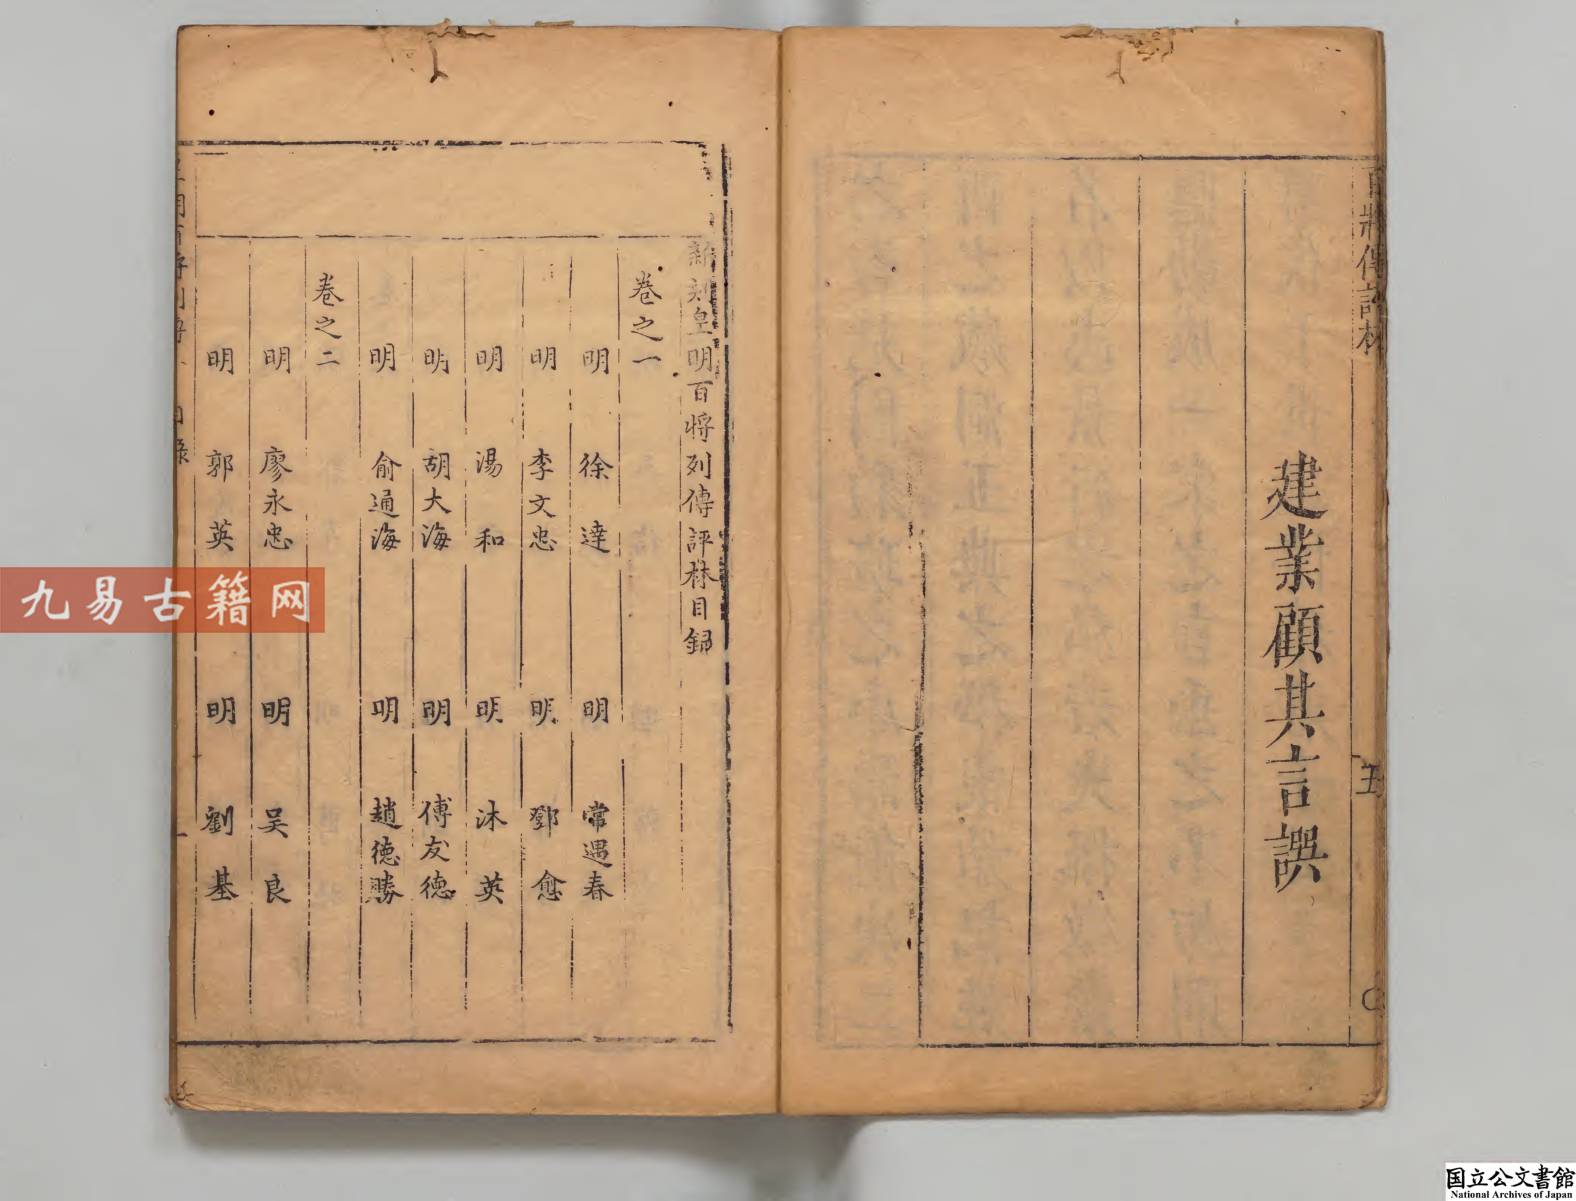 百將傳評林
五
建業顧其言譔
新刻皇明百將列傳評林目錄
卷之一
明 徐達 明 常遇春
明 李文忠 明 鄧愈
明 湯和 明 沐英
明 胡大海 明 傅友德
明 俞通海 明 趙德勝
卷之二
明 廖永忠 明 吳良
明 郭英 明 劉基
九易古籍网
国立公文書館
National Archives of Japan